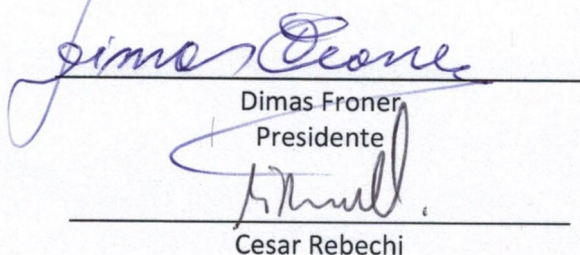 Dimas Froner
Dimas Froner
Presidente
Cesar Rebechi